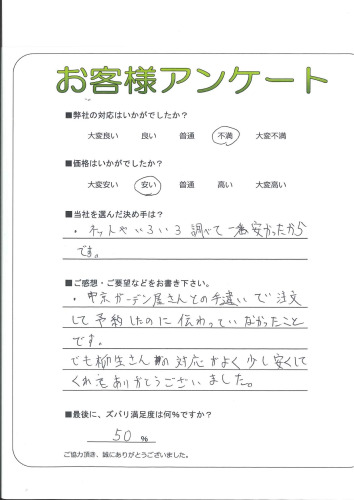 お客様アンケート
■弊社の対応はいかがでしたか?
大変良い 良い 普通 不満 大変不満
■価格はいかがでしたか?
大変安い 安い 普通 高い 大変高い
■当社を選んだ決め手は?
・ネットやいろいろ調べて一番安かったから
です。
■ご感想・ご要望などをお書き下さい。
・東京ガーデン屋さんとの手違いで注文
して予約したのに伝わっていなかったこと
です。
でも柳生さんの対応がよく少し安くして
くれもありがとうございました。
■最後に、ズバリ満足度は何%ですか?
50 %
ご協力頂き、誠にありがとうございました。